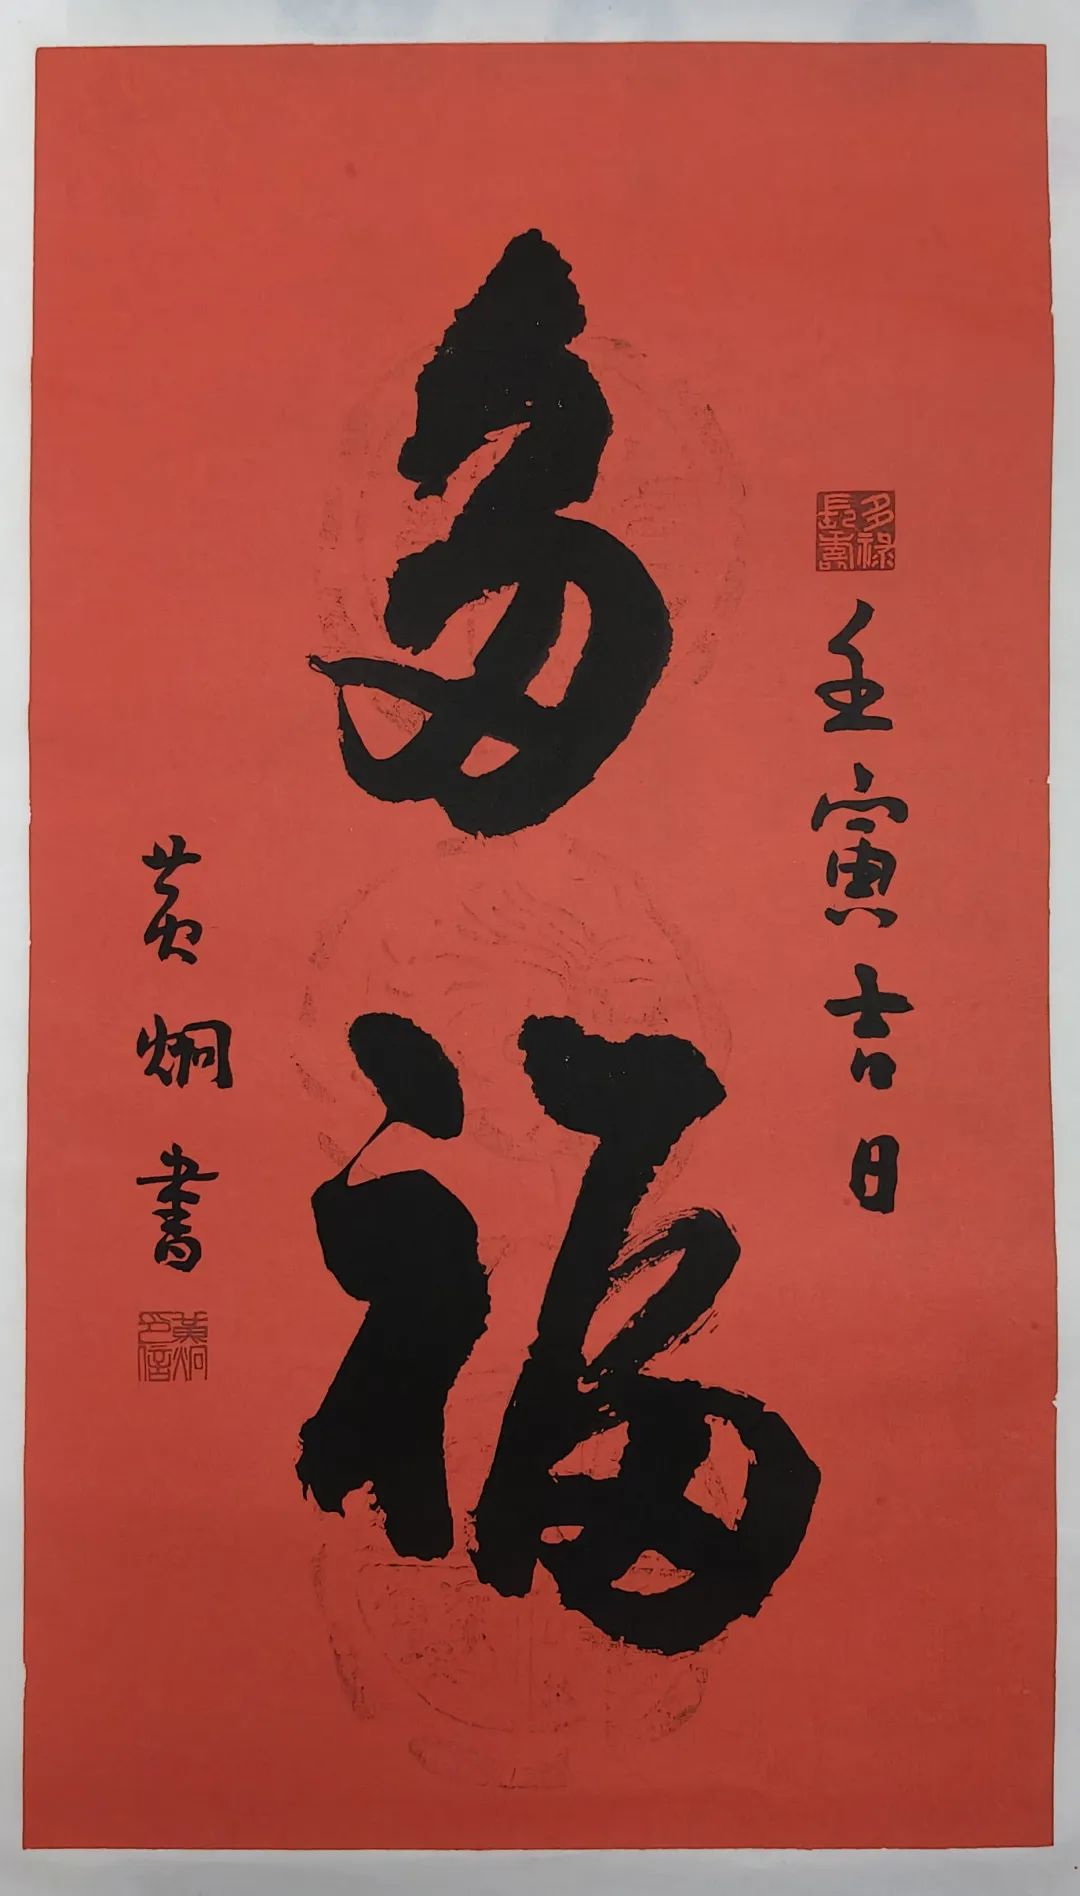 多禄長壽
壬寅吉日
多福
黄炯書
黄炯印信